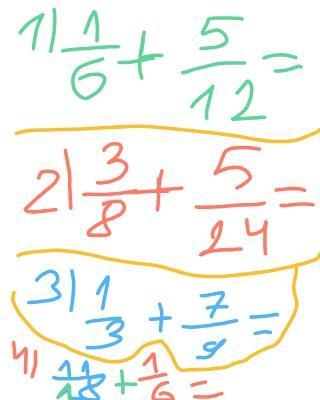 1) 1/6 + 5/12 =
2) 3/8 + 5/24 =
3) 1/3 + 7/9 =
4) 11/18 + 1/6 =